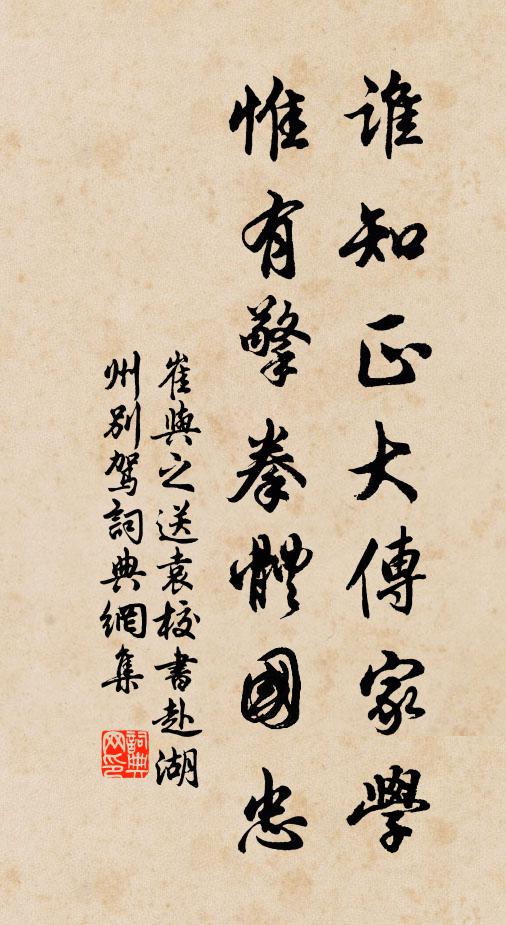 誰知正大傳家學
惟有擎拳體國忠
崔與之送袁校書赴湖
州別駕詞典網集
詞典網印